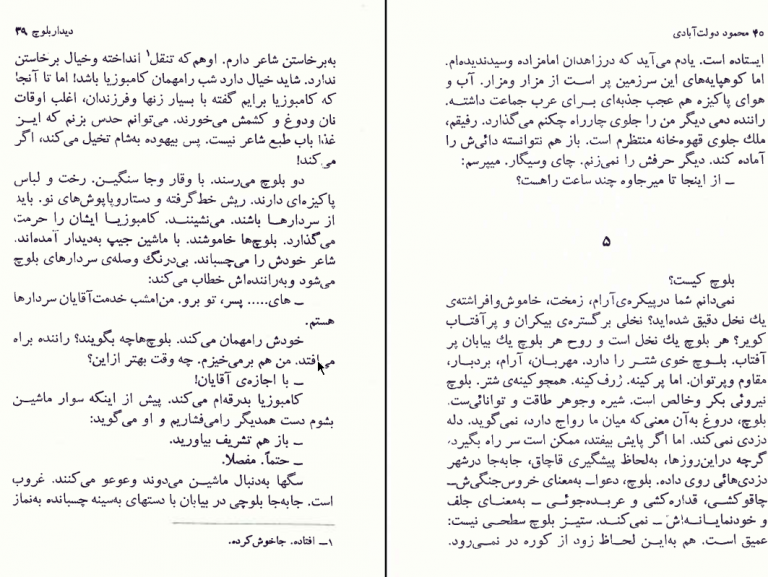 دیدار بلوچ ۳۹
به‌برخاستن شاعر دارم. اوهم‌که تنقل۱ انداخته وخیال برخاستن
ندارد. شاید خیال دارد شب رامهمان کامبوزیا باشد! اما تا آنجا
که کامبوزیا برایم گفته با بسیار زنها وفرزندان، اغلب اوقات
نان ودوغ و کشمش می‌خورند. می‌توانم حدس بزنم که ایـن
غذا باب طبع شاعر نیست. پس بیهوده به‌شام تخیل می‌کند، اگر
می‌کند!
دو بلوچ می‌رسند. با وقار وجا سنگیـن. رخت و لباس
پاکیزه‌ای دارند. ریش خط‌گرفته و دستاروپاپوش‌های نو. باید
از سردارهـا باشند. می‌نشیننـد. کامبوزیـا ایشان را حرمت
می‌گذارد. بلوچ‌ها خاموشند. با ماشین جیپ به‌دیدار آمده‌اند.
شاعر خودش را می‌چسباند. بی‌درنگ وصله‌ی سردارهای بلوچ
می‌شود وبه‌راننده‌اش خطاب می‌کند:
ــ های..... پسر، تو برو. من‌امشب خدمت‌آقایان سردارها
هستم.
خودش رامهمان می‌کند. بلوچ‌هاچه بگویند؟ راننده براه
می‌افتد. من هم برمی‌خیزم. چه وقت بهتر ازاین؟
ــ با اجازه‌ی آقایان!
کامبوزیا بدرقه‌ام می‌کند. پیش از اینکه سوار ماشیـن
بشوم دست همدیگر رامی‌فشاریم و او می‌گوید:
ــ باز هم تشریف بیاورید.
ــ حتماً. مفصلا.
سگها به‌دنبال ماشیـن می‌دوند وعوعو می‌کنند. غروب
است. جابه‌جا بلوچی در بیابان با دستهای به‌سینه چسبانده به‌نماز
۱ــ افتاده. جاخوش‌کرده.
۴۰ محمود دولت‌آبادی
ایستاده است. یادم می‌آید که درزاهدان امامزاده وسیدندیده‌ام.
اما کوهپایه‌های این سرزمین پر اسـت از مزار ومزار. آب و
هوای پاکیزه هم عجب جذبه‌ای بـرای عرب جماعت داشتـه.
راننده دمی دیگر من را جلوی چارراه چکنم می‌گذارد. رفیقم،
ملك جلوی قهوه‌خانه منتظرم است. باز هم نتوانسته دائی‌ش را
آماده کند. دیگر حرفش را نمی‌زنم. چای وسیگار. میپرسم:
ــ از اینجا تا میرجاوه چند ساعت راهست؟
۵
بلوچ کیست؟
نمی‌دانم شما درپیکره‌ی‌آرام، زمخت، خاموش‌وافراشته‌ی
یك نخل دقیق شده‌اید؟ نخلی برگستره‌ی بیکران و پرآفتـاب
کویر؟ هر بلوچ یك نخل است و روح هر بلوچ یك بیابان پر
آفتاب. بلـوچ خوی شتـر را دارد. مهربـان، آرام، بردبـار،
مقاوم وپرتوان. اما پرکینه. ژرف‌کینه. همچو‌کینه‌ی شتر. بلوچ
نیروئی بکر وخالص است. شیره وجوهر طاقت و توانائی‌ست.
بلوچ، دروغ به‌آن معنی‌که میان ما رواج دارد، نمی‌گوید. دله
دزدی نمی‌کند. اما اگر پایش بیفتد، ممکن است سر راه بگیرد،
گرچه دراین‌روزها، به‌لحاظ پیشگیری قاچاق، جابه‌جا درشهر
دزدی‌هائی روی داده. بلوچ، دعواــ به‌معنای خروس‌جنگی‌شــ
چاقوکشـی، قداره‌کشی و عربـده‌جوئـی ــ به‌معنـای جلف
و خودنمایـانـه‌اش ــ نمی‌کنـد. ستیـز بلوچ سطحـی نیست:
عمیق اسـت. هم به‌ایـن لحـاظ زود از کوره در نمـی‌رود.